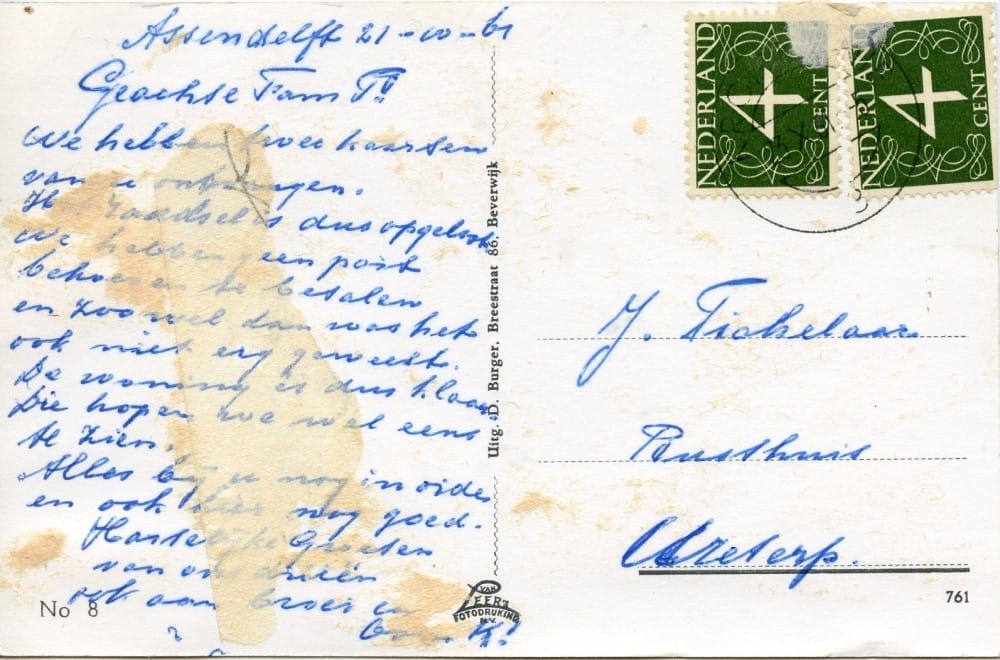 Assendelft 21-10-61
Geachte Fam T!!
We hebben twee kaarsen
van u ontvangen.
Het raadsel is dus opgelost
We hebben geen post
behoeven te betalen
en zoo wel dan was het
ook niet erg geweest.
De woning is dus klaar
Die hopen we wel eens
te zien.
Alles bij u nog in orde
en ook hier nog goed.
Hartelijke Groeten
van ons drieën
ook aan broer en
No 8
Uitg. D. Burger, Breestraat 86, Beverwijk
VAN
LEER'S
FOTODRUKIND.
N.V.
NEDERLAND
4
CENT
NEDERLAND
4
CENT
J. Tichelaar
Rusthuis
Ureterp.
761